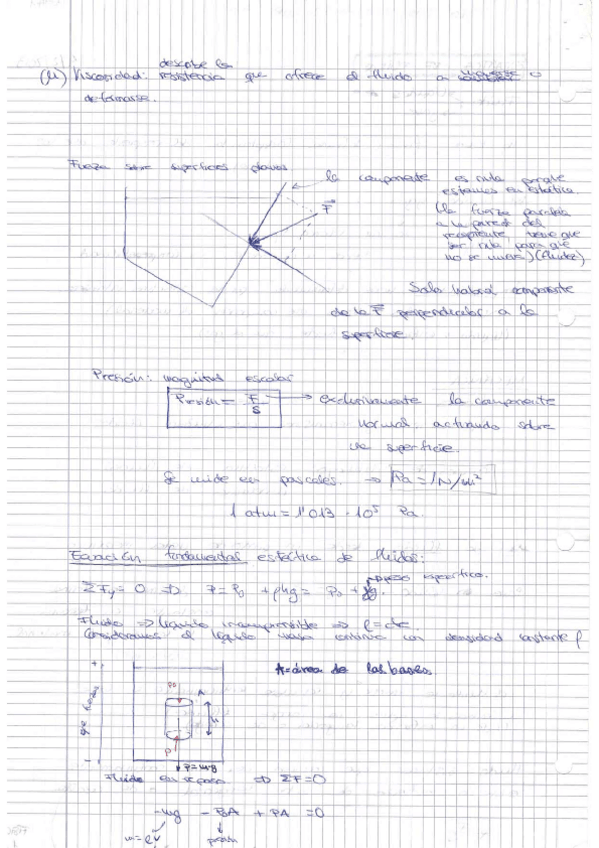 describe la
(μ) Viscosidad: resistencia que ofrece el fluido a o
deformarse.
Fuerza sobre superficies planas
la componente es nula porque
estamos en estática.
F
(la fuerza paralela
a la pared del
recipiente, tiene que
ser nula para que
no se mueva) (fluidez)
Solo habrá componente
de la F perpendicular a la
superficie.
Presión: magnitud escalar
Presión = F/S → exclusivamente la componente
normal actuando sobre
superficie.
Se mide en pascales. → Pa = 1N/m²
1 atm = 1'013 · 10⁵ Pa.
Ecuación fundamental estática de fluidos:
peso específico.
ΣFy = 0 ⇒ P = P₀ + ρhg = P₀ +
Fluido ⇒ líquido incompresible ⇒ ρ = cte
Consideramos el líquido medio continuo con densidad constante ρ
A = área de las bases
P₀ A
h
P
P = m·g
Fluido en reposo ⇒ ΣF = 0
-mg - P₀A + PA = 0
m = ρV